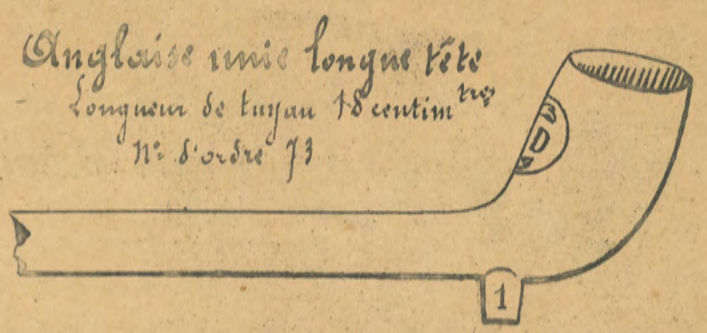 Anglaise unie longue tête
Longueur de tuyau 18 centim^tres
N° d'ordre 73
D
1